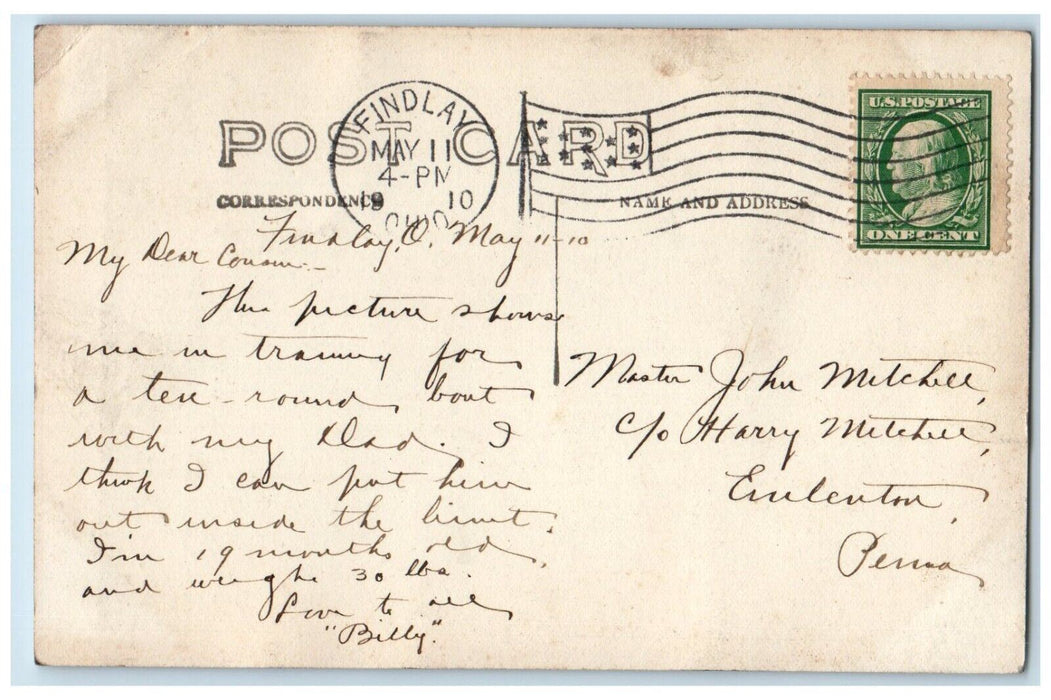 POST CARD
FINDLAY
MAY 11
4-PM
19 10
OHIO
U.S. POSTAGE
ONE CENT
CORRESPONDENCE
NAME AND ADDRESS
Findlay, O. May 11-10
My Dear Cousin:-
This picture shows
me in training for
a ten-round bout
with my Dad. I
think I can put him
out inside the limit.
I'm 19 months old,
and weighs 30 lbs.
Love to all
"Billy".
Master John Mitchell,
c/o Harry Mitchell,
Emlenton,
Penna